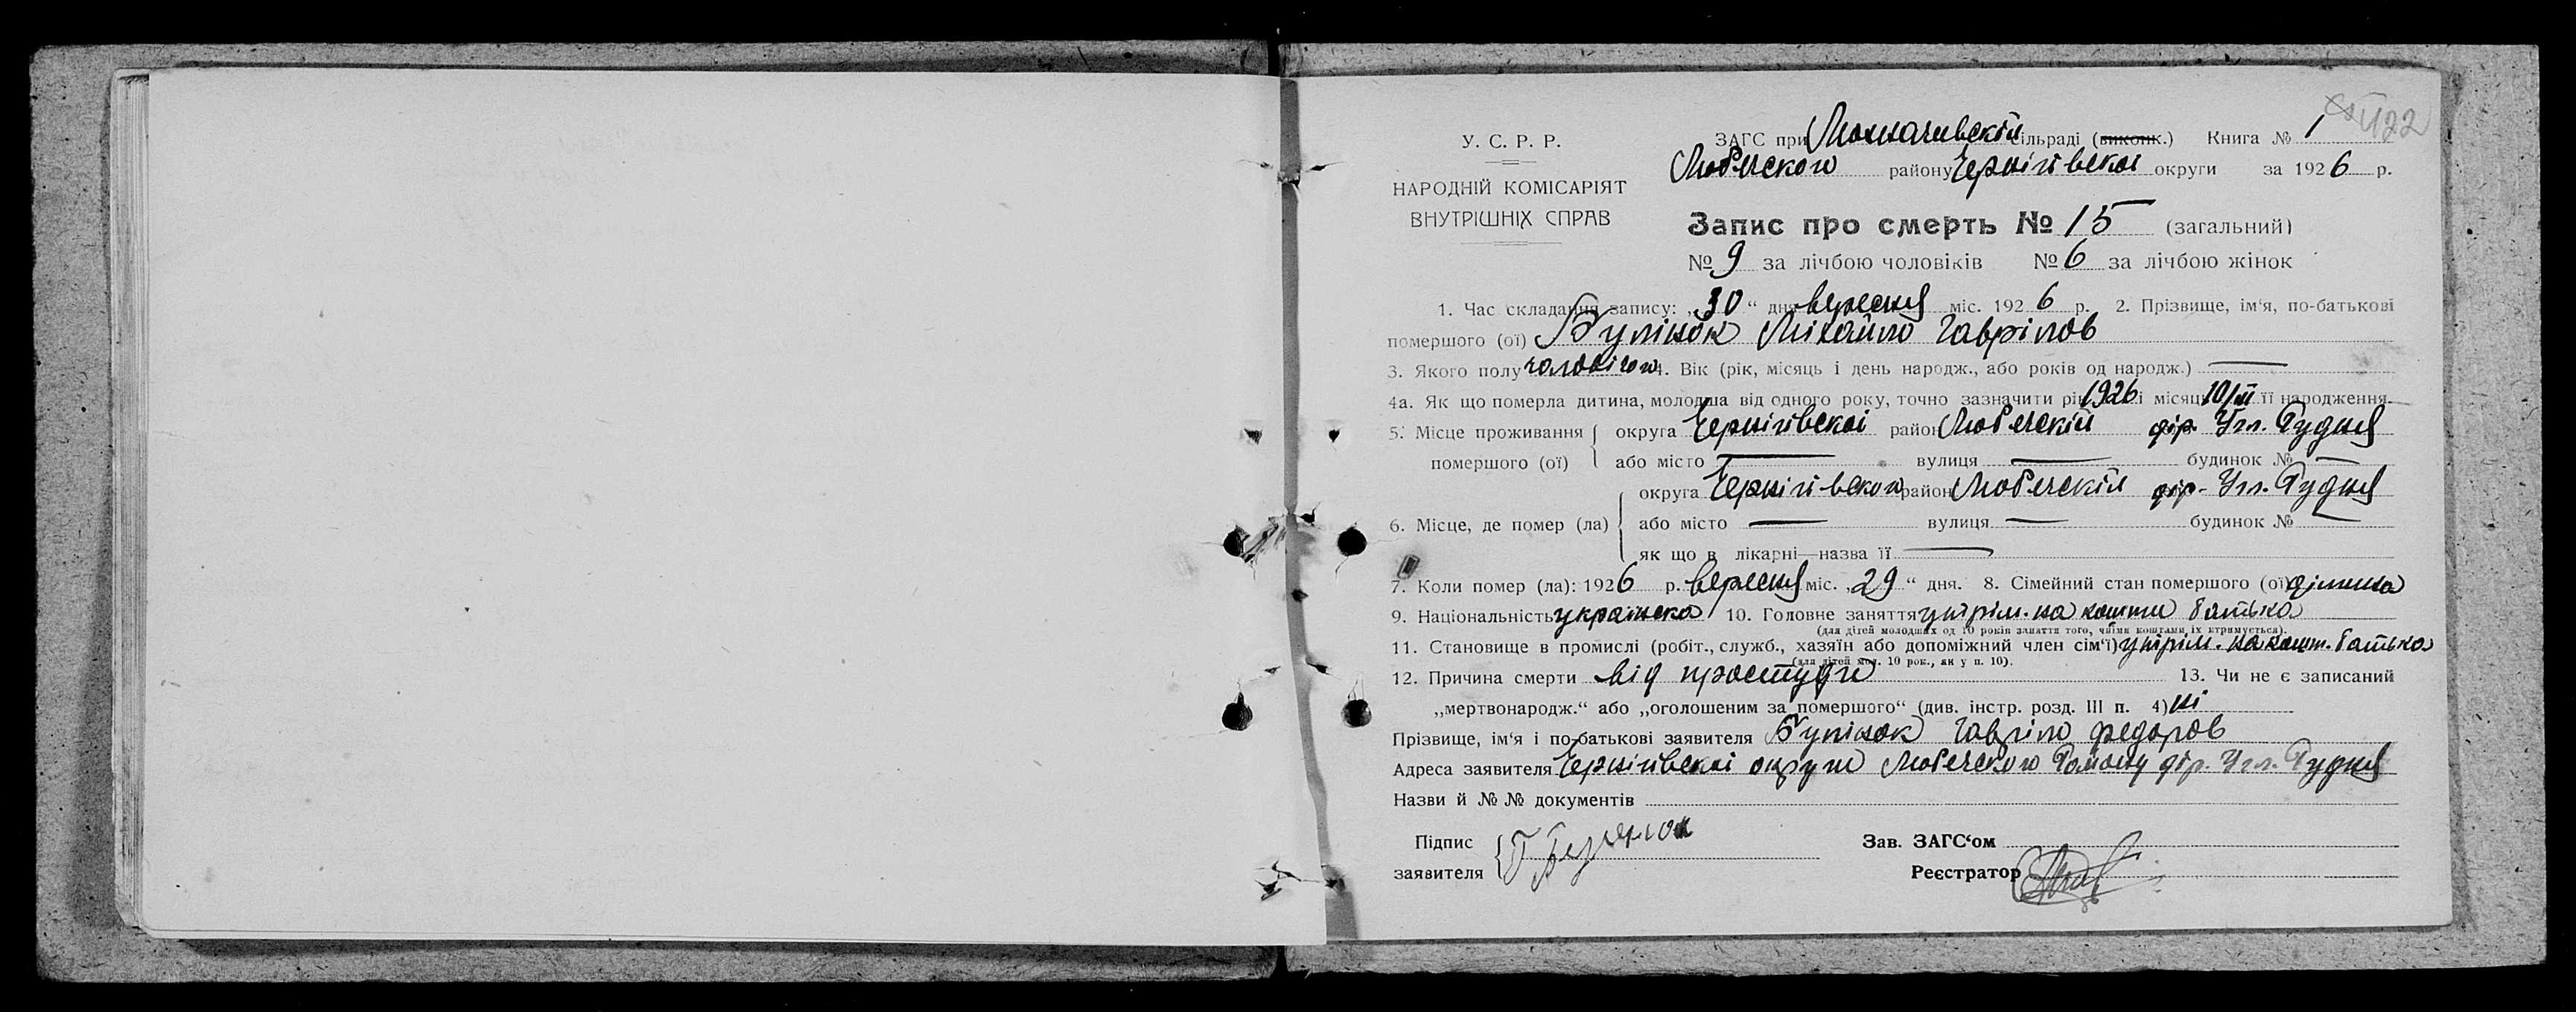 У. С. Р. Р.
НАРОДНІЙ КОМІСАРІЯТ
ВНУТРІШНІХ СПРАВ
ЗАГС при сільраді (виконк.) Книга № 1
Любечского району Чернігівскоі округи за 1926 р.
Запис про смерть № 15 (загальний)
№ 9 за лічбою чоловіків № 6 за лічбою жінок
1. Час складання запису: „30“ дня вересня міс. 1926 р. 2. Прізвище, ім'я, по-батькові
помершого (ої) Міхайло Гаврілов
3. Якого полу чоловічого 4. Вік (рік, місяць і день народж., або років од народж.) —
4а. Як що померла дитина, молодша від одного року, точно зазначити рік 1926 і місяць її народження.
5. Місце проживання помершого (ої) округа Чернігівскоі район Любечскій дер. Угл. Рудня
або місто — вулиця — будинок № —
6. Місце, де помер (ла) округа Чернігівского район Любечскій дер. Угл. Рудня
або місто — вулиця — будинок № —
як що в лікарні—назва її —
7. Коли помер (ла): 1926 р. вересня міс. „29“ дня. 8. Сімейний стан помершого (ої) дітина
9. Національність українска 10. Головне заняття утрім. на кошти батька
(для дітей молодших од 10 років заняття того, чиїми коштами їх утримується).
11. Становище в промислі (робіт., служб., хазяїн або допоміжний член сім'ї) утрім. на кошт. батька
(для дітей мол. 10 рок., як у п. 10).
12. Причина смерти від простуди 13. Чи не є записаний
„мертвонародж.“ або „оголошеним за помершого“ (див. інстр. розд. III п. 4) ні
Прізвище, ім'я і по-батькові заявителя Гавріло Федоров
Адреса заявителя Чернігівскоі округи Любечского Району дер. Угл. Рудня
Назви й №№ документів
Підпис заявителя
Зав. ЗАГС'ом
Реєстратор